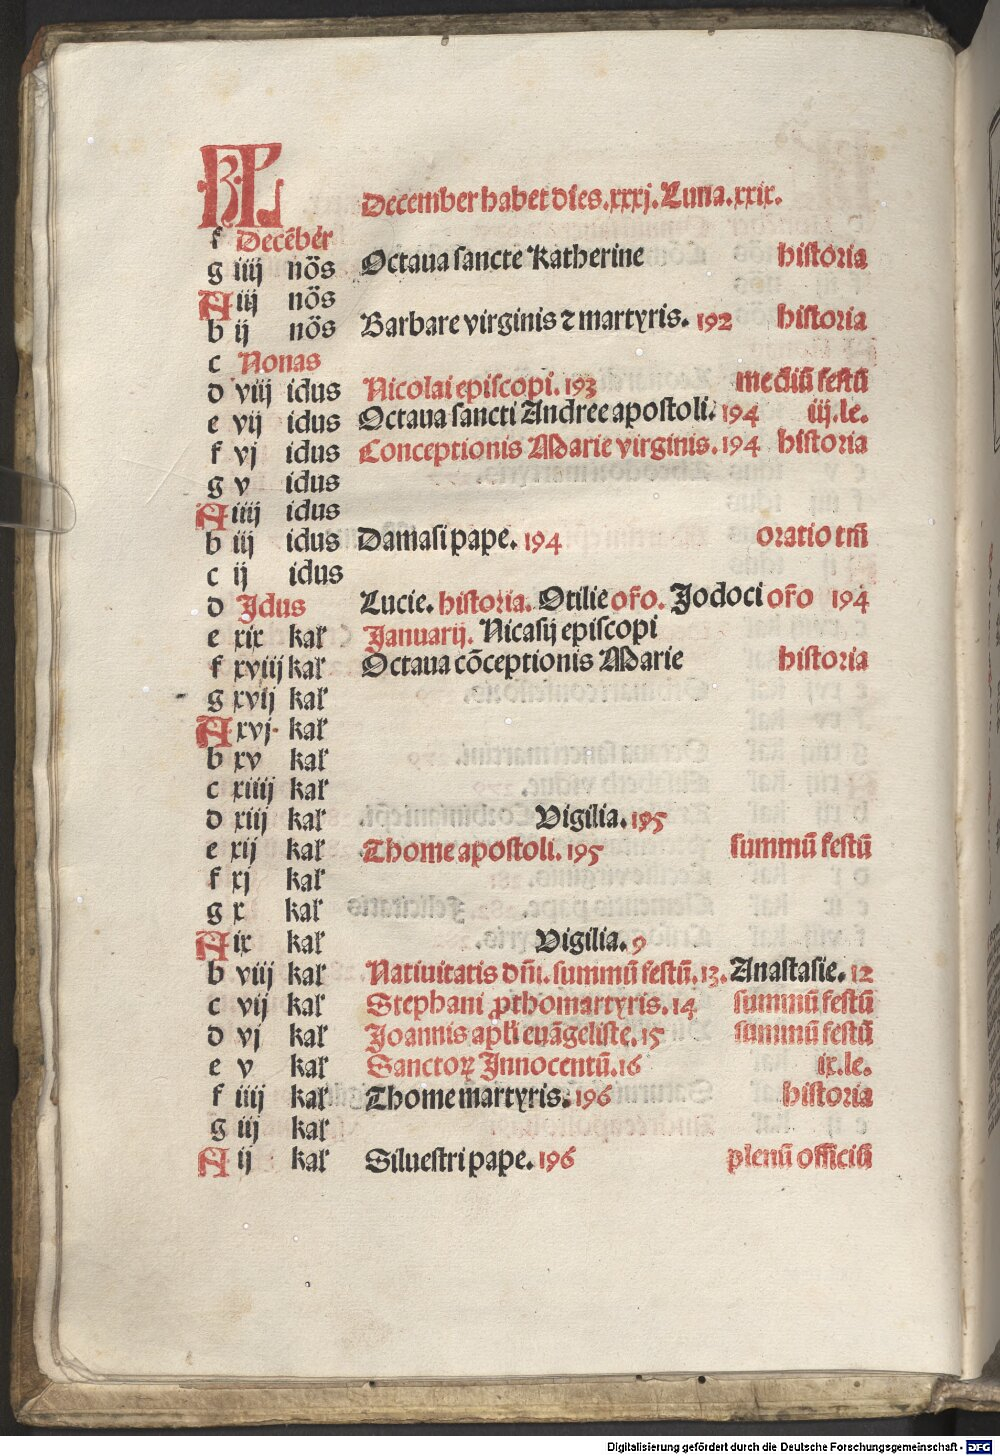 KL December habet dies.xxxj.Luna.xxix.
f Decẽber
g iiij nõs Octaua sancte Katherine historia
A iij nõs
b ij nõs Barbare virginis ⁊ martyris. 192 historia
c Nonas
d viij idus Nicolai episcopi. 193 mediũ festũ
e vij idus Octaua sancti Andree apostoli. 194 iij.le.
f vj idus Conceptionis Marie virginis. 194 historia
g v idus
A iiij idus
b iij idus Damasi pape. 194 oratio tm̃
c ij idus
d Idus Lucie. historia. Otilie or̃o. Jodoci or̃o 194
e xix kal' Januarij. Nicasij episcopi
f xviij kal' Octaua cõceptionis Marie historia
g xvij kal'
A xvj kal'
b xv kal'
c xiiij kal'
d xiij kal' Vigilia. 195
e xij kal' Thome apostoli. 195 summũ festũ
f xj kal'
g x kal'
A ix kal' Vigilia. 9
b viij kal' Natiuitatis dñi. summũ festũ. 13. Anastasie. 12
c vij kal' Stephani ꝓthomartyris. 14 summũ festũ
d vj kal' Joannis apl'i euãgeliste. 15 summũ festũ
e v kal' Sanctoꝝ Innocentũ. 16 ix.le.
f iiij kal' Thome martyris. 196 historia
g iij kal'
A ij kal' Siluestri pape. 196 plenũ officiũ
Digitalisierung gefördert durch die Deutsche Forschungsgemeinschaft - DFG